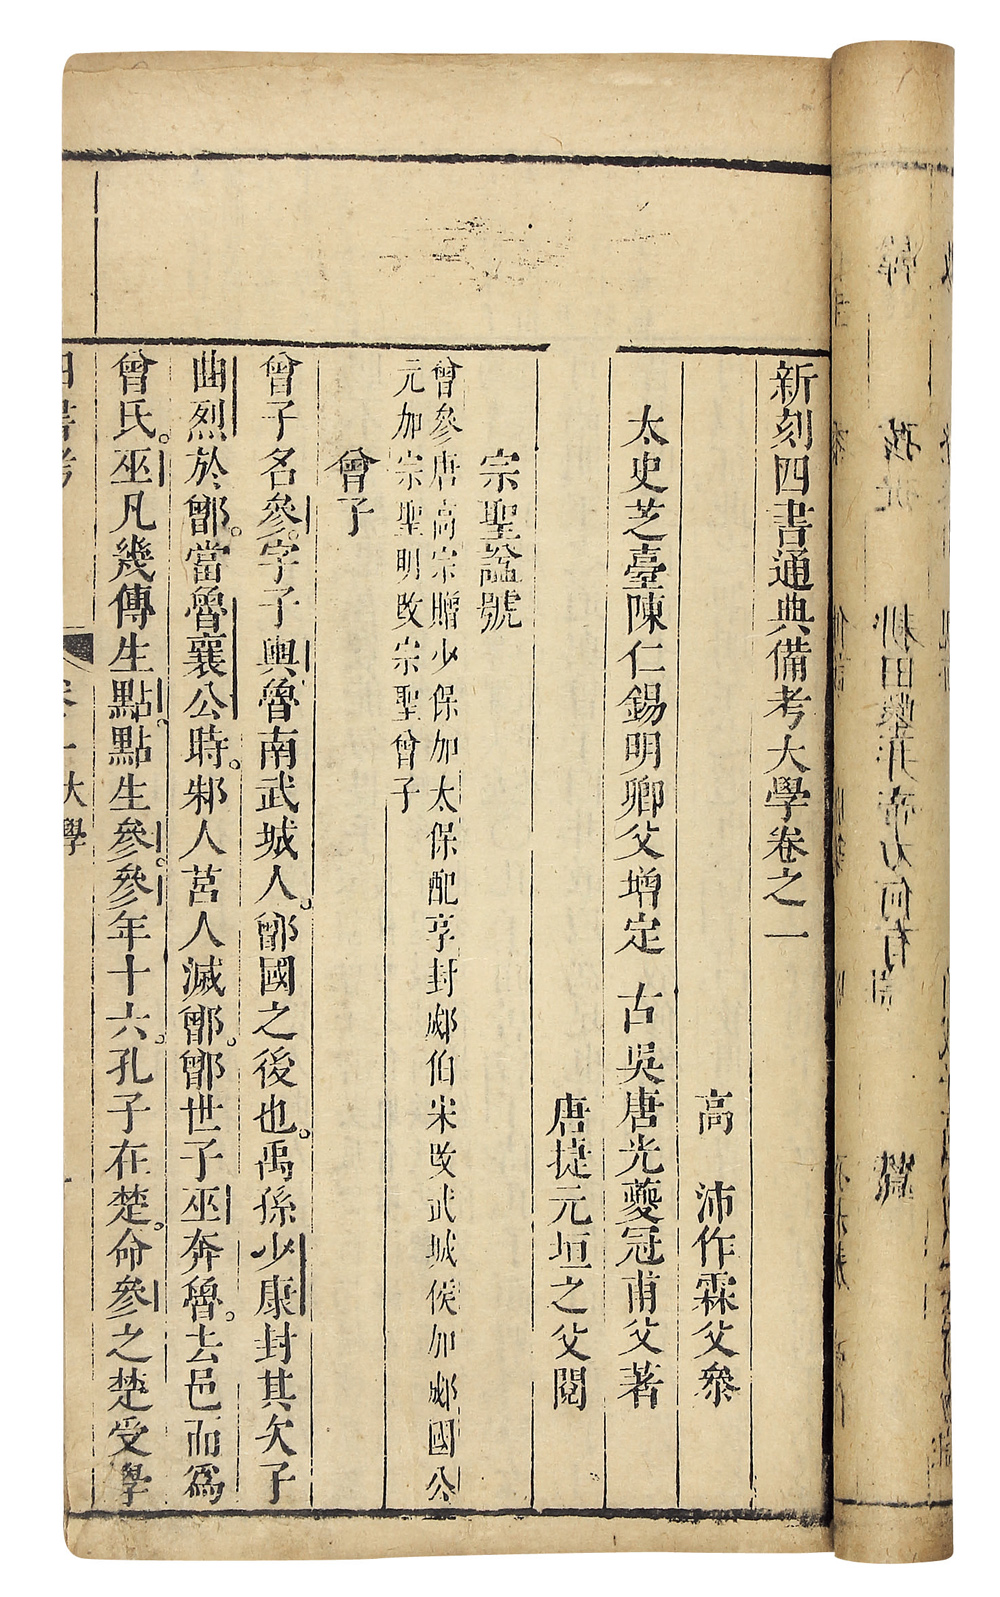 新刻四書通典備考大學卷之一
高　沛作霖父叅
太史芝臺陳仁錫明卿父增定　古吳唐光夔冠甫父著
唐捷元垣之父閱
宗聖謚號
曾參唐高宗贈少保加太保配享封郕伯宋改武城侯加郕國公
元加宗聖明改宗聖曾子
曾子
曾子名參。字子輿魯南武城人。鄫國之後也。禹孫少康封其次子
曲烈於鄫。當魯襄公時。邾人莒人滅鄫。鄫世子巫奔魯。去邑而爲
曾氏。巫凡幾傳生點。點生參。參年十六。孔子在楚。命參之楚受學